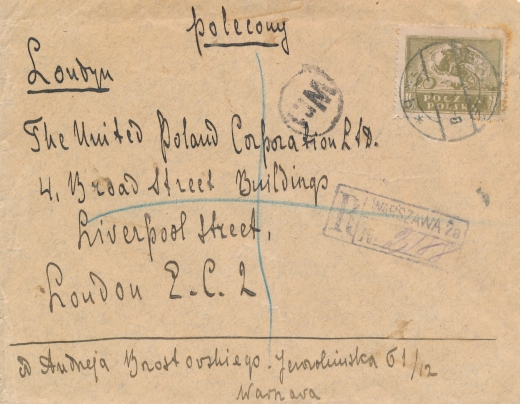 polecony
Londyn
The United Poland Corporation Ltd.
4, Broad Street Buildings
Liverpool Street,
London E.C.2
POCZTA
POLSKA
R WARSZAWA 2a
№
Andreja Brostovskiego. 61/12
Warszava